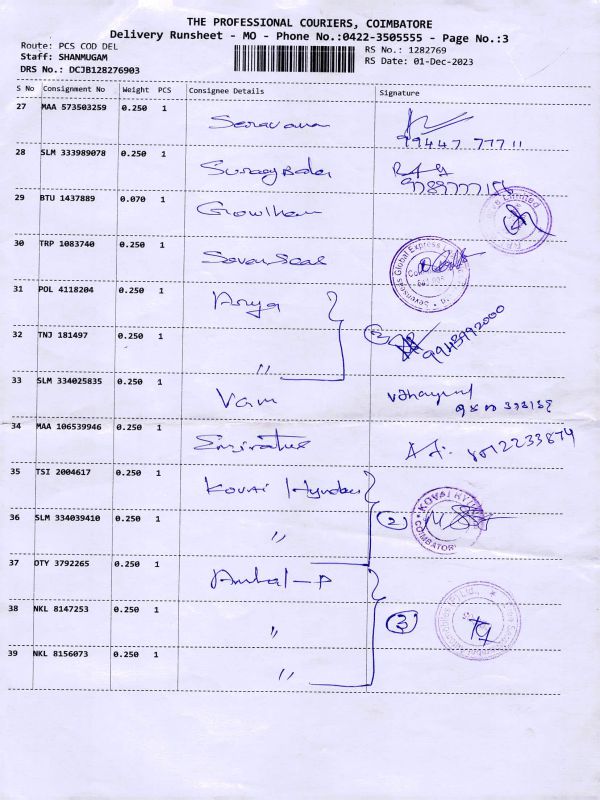 THE PROFESSIONAL COURIERS, COIMBATORE
Delivery Runsheet - MO - Phone No.:0422-3505555 - Page No.:3
Route: PCS COD DEL
RS No.: 1282769
Staff: SHANMUGAM
RS Date: 01-Dec-2023
DRS No.: DCJB128276903
S No Consignment No Weight PCS Consignee Details Signature
27 MAA 573503259 0.250 1 Saravana
99447 77711
28 SLM 333989078 0.250 1
29 BTU 1437889 0.070 1 Growlham
30 TRP 1083740 0.250 1 Seven Seas
31 POL 4118204 0.250 1 Arya
32 TNJ 181497 0.250 1 〃 (2)
33 SLM 334025835 0.250 1 Vam
34 MAA 106539946 0.250 1 Emirates 8012233874
35 TSI 2004617 0.250 1 Kovai Hyundai
KOVAI HYUN
COIMBATORE
36 SLM 334039410 0.250 1 〃 (2)
37 OTY 3792265 0.250 1 Ambal-P
38 NKL 8147253 0.250 1 〃 (3)
39 NKL 8156073 0.250 1 〃